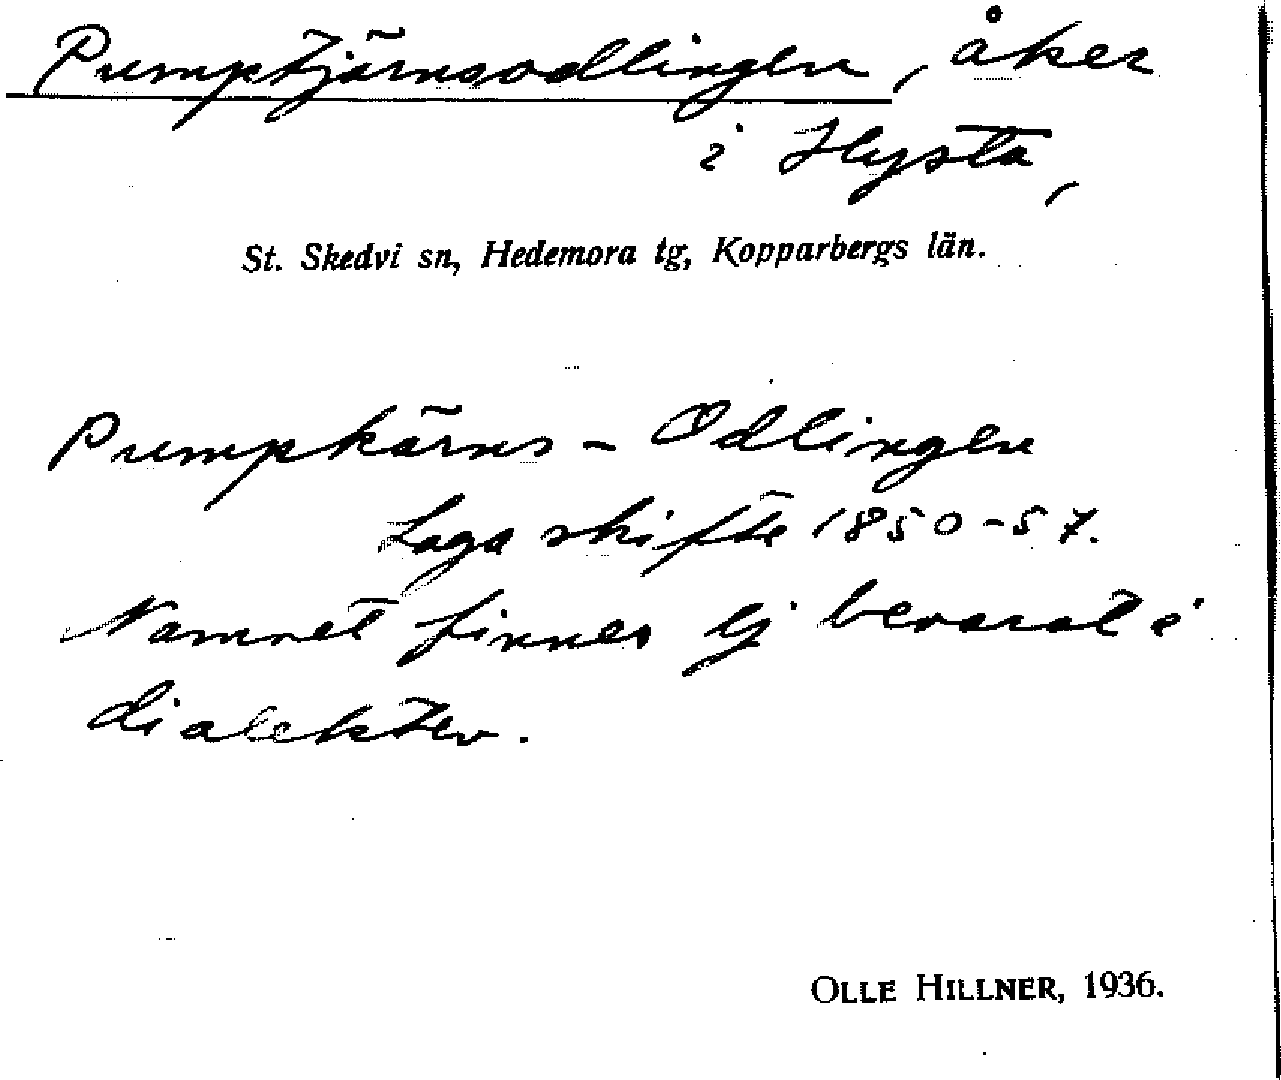 Pumptjärnsodlingen, åker
i Hysta,
St. Skedvi sn, Hedemora tg, Kopparbergs län.
Pumpkärns - Odlingen
Laga skifte 1850-57.
Namnet finnes ej bevarat i
dialekten.
OLLE HILLNER, 1936.